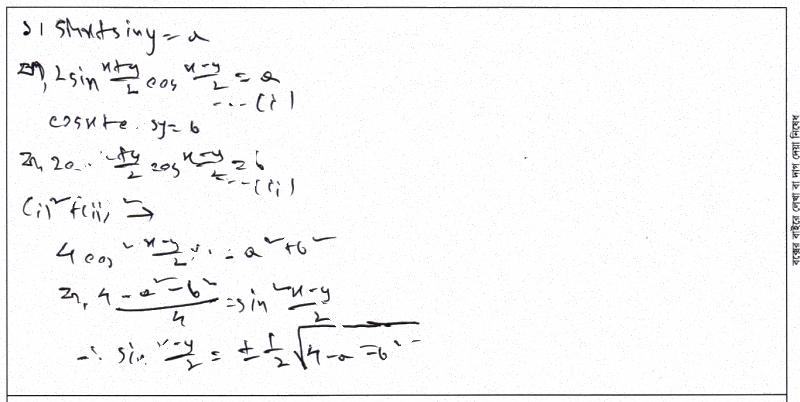 ১। sinx+siny = a
বা, 2sin x+y/2 cos x-y/2 = a ... (i)
cosx+c sy = b
বা, 2c.. x+y/2 cos x-y/2 = b ... (ii)
(i)² + (ii)² →
4 cos² x-y/2 = a²+b²
বা, 4-a²-b²/4 = sin² x-y/2
∴ sin x-y/2 = ± 1/2 √4-a²-b²
বক্সের বাইরে লেখা বা দাগ দেয়া নিষেধ